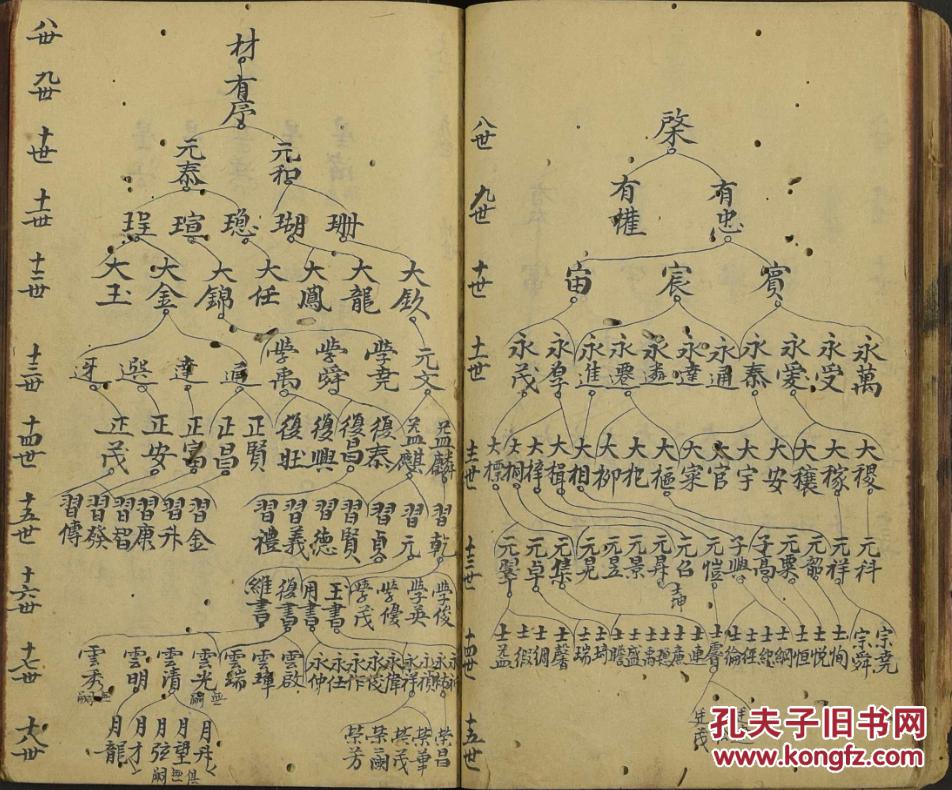 八世
啓
九世
有忠
有權
十世
賓
宸
宙
十一世
永萬
永受
永愛
永泰
永通
永達
永遴
永遷
永進
永茂
十二世
大稷
大稼
大穰
大安
大宇
大官
大寀
大樞
大杞
大柳
大相
大楫
大梓
大桐
大標
十三世
元科
元祥
元韶
元栗
子高
子興
元愷
元召
元昇
元景
元昱
元晃
元集
元卓
元翠
十四世
宗堯
宗舜
士恂
士悅
士恒
士綱
士紀
士經
士倫
士連
士廣
士穗
士禹
士盛
士騰
士琦
士瑞
士馨
士侗
士假
士孟
士坤
十五世
廷茂
八世
材
九世
有序
十世
元和
元泰
十一世
珊
瑚
璁
瑄
珵
十二世
大欽
大龍
大鳳
大任
大錦
大金
大玉
十三世
元文
學堯
學舜
學禹
達
選
十四世
益麟
益麒
復泰
復昌
復興
復旺
正賢
正昌
正富
正安
正茂
十五世
習乾
習元
習貞
習賢
習德
習義
習禮
習金
習升
習康
習智
習發
習傳
十六世
學俊
學英
學優
學茂
玉書
用書
復書
維書
十七世
永禎
永祥
永偉
永俊
永作
永任
永仲
雲啟
雲瑋
雲瑞
雲光
無嗣
雲清
雲明
雲秀
無嗣
十八世
榮昌
榮華
榮茂
榮嗣
榮芳
月升
月望
月弦
月才
月龍
俱無嗣
孔夫子旧书网
www.kongfz.com